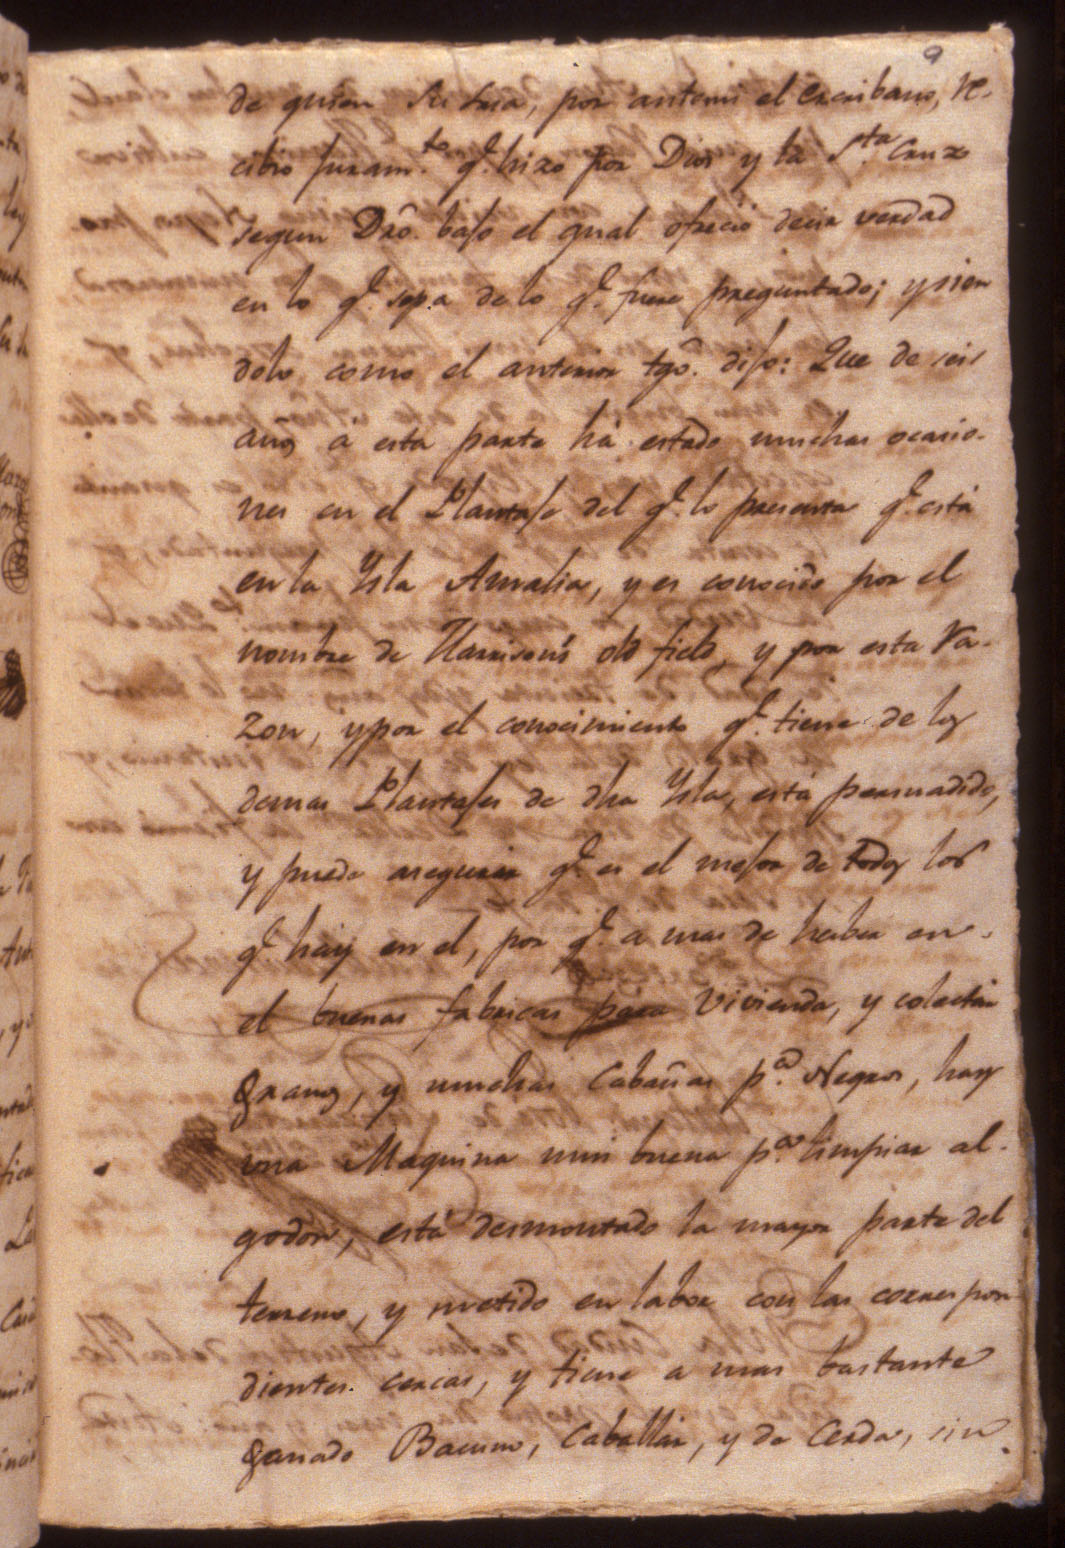 9
de quien Su Sria, por antemi el Escribano, re-
cibio juram.to q.e hizo por Dios y la S.ta Cruz
segun Dro. bajo el qual ofrecio decir verdad
en lo q.e sepa de lo q.e fuere preguntado; y sien
dolo como el anterior tgo. dijo: Que de seis
años a esta parte há estado muchas ocasio-
nes en el Plantaje del q.e lo presenta q.e está
en la Ysla Amalia, y es conocido por el
nombre de Harrison's old field, y por esta ra-
zon, y por el conocimiento q.e tiene de los
demas Plantajes de dha Ysla, está persuadido,
y puede asegurar q.e es el mejor de todos los
q.e hay en el, por q.e a mas de haber en
el buenas fabricas para vivienda, y colectar
granos, y muchas Cabañas p.a Negros, hay
una Maquina mui buena p.a limpiar al-
godon, está desmontado la mayor parte del
terreno, y metido en labor con las correspon
dientes cercas, y tiene a mas bastante
ganado Bacuno, Caballar, y de Cerda, sin